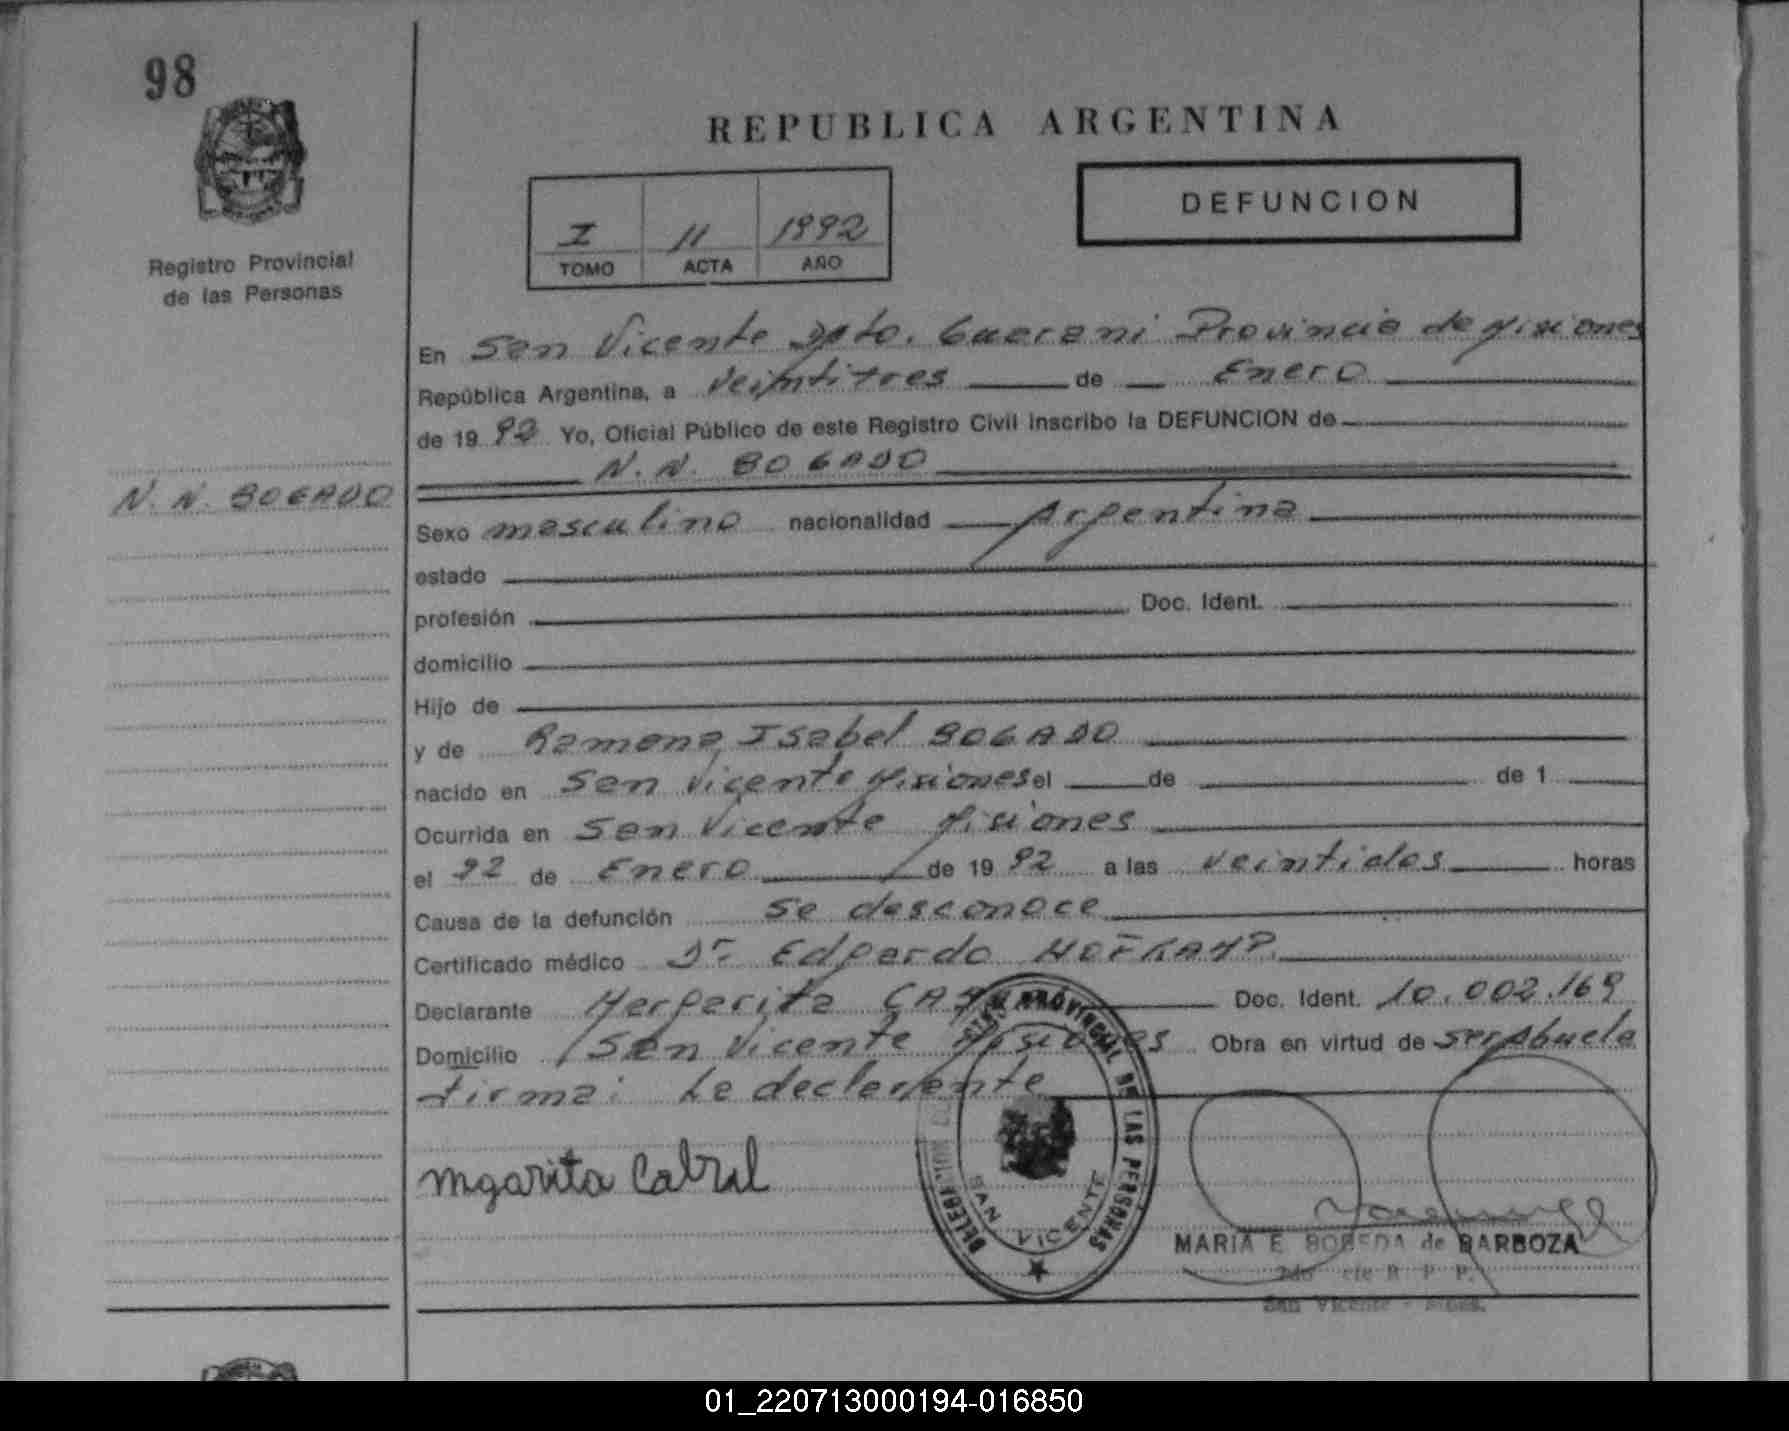 98
REPUBLICA ARGENTINA
DEFUNCION
I 11 1992
TOMO ACTA AÑO
Registro Provincial
de las Personas
En San Vicente Dpto. Guarani Provincia de Misiones
República Argentina, a veintitres de Enero
de 19 92 Yo, Oficial Público de este Registro Civil inscribo la DEFUNCION de
N. N. BOGADO
N. N. BOGADO
Sexo masculino nacionalidad Argentina
estado
profesión Doc. Ident.
domicilio
Hijo de
y de Ramona Isabel BOGADO
nacido en San Vicente Misiones el de de 1
Ocurrida en San Vicente Misiones
el 22 de Enero de 19 92 a las veintidos horas
Causa de la defunción se desconoce
Certificado médico Dr Edgardo
Declarante Margarita Doc. Ident. 10.002.169
Domicilio San Vicente Misiones Obra en virtud de ser Abuela
firma: La declarante
mgarita Cabral
DELEGACION PROVINCIAL DE LAS PERSONAS
SAN VICENTE
MARIA E. BOBEDA de BARBOZA
R. P. P.
San Vicente - Mnes.
01_220713000194-016850